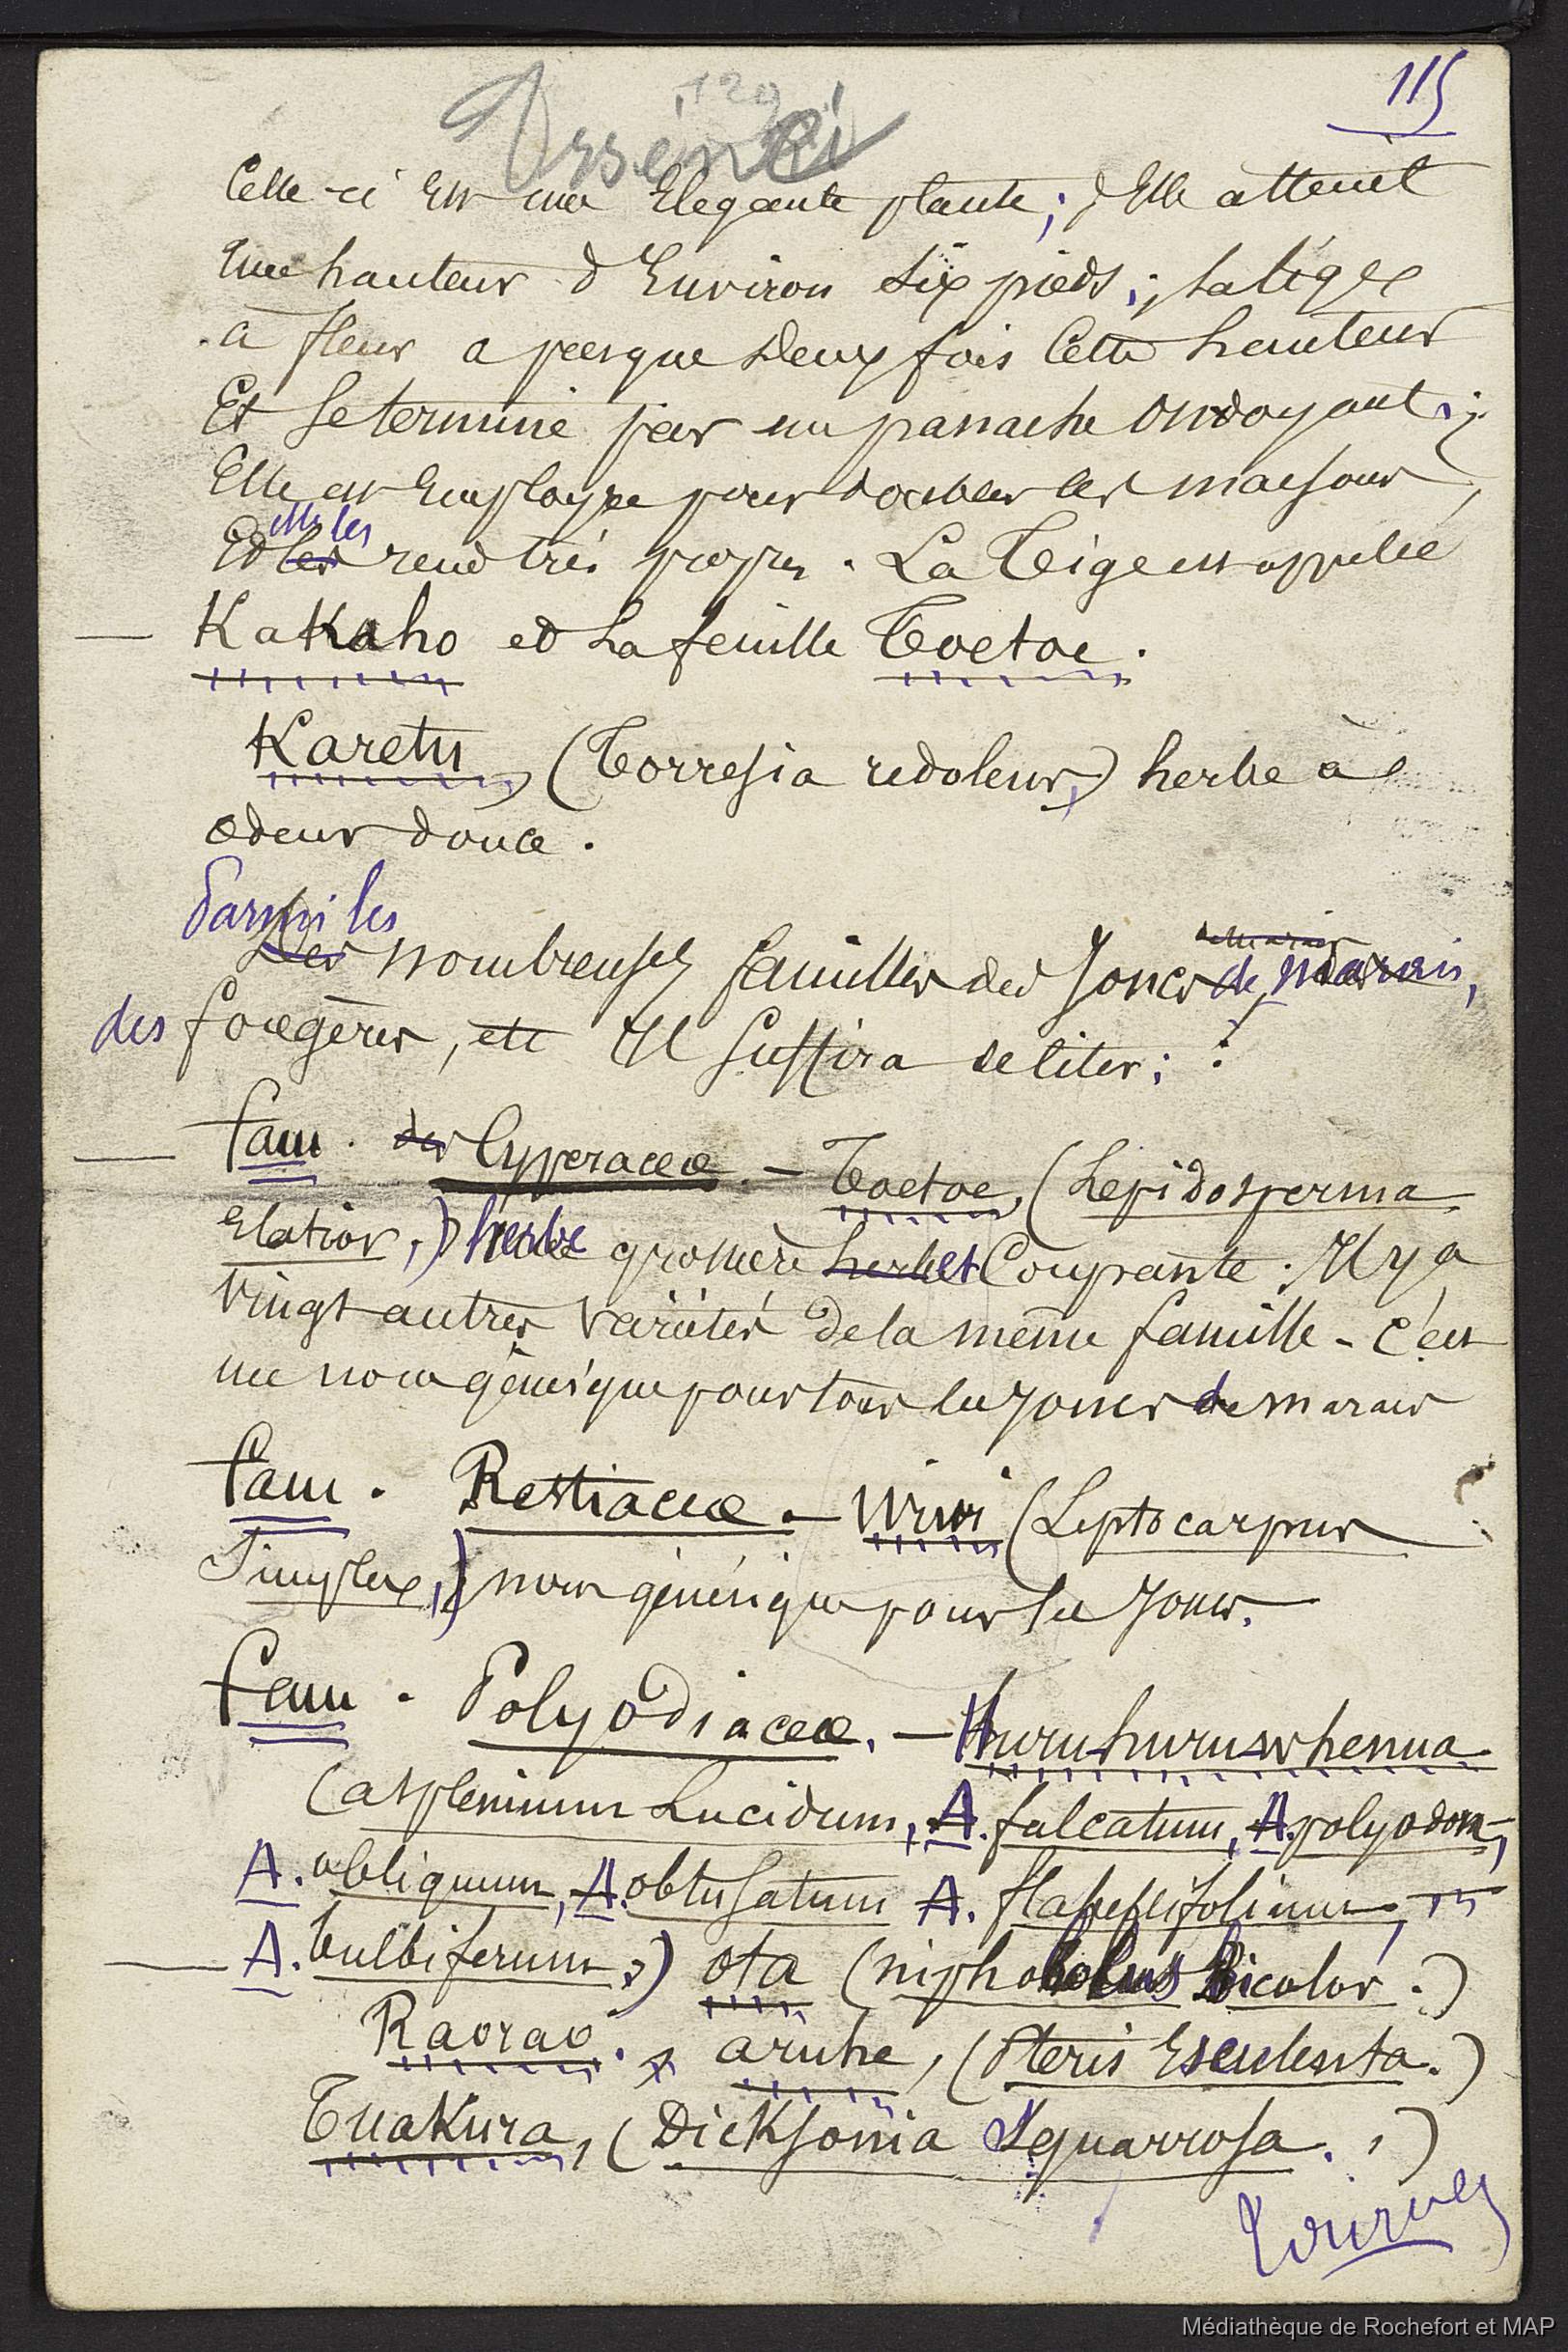 115
129
Arsène
Celle-ci est une élégante plante; Elle atteint
une hauteur d'environ six pieds; la tige
à fleur a presque deux fois cette hauteur
Et se termine par un panache ondoyant;
Elle est employée pour doubler les maisons,
elle les
Et les rend très propres. La Tige est appelée
— Kakaho et la feuille Toetoe.
Karetu, (Torresia redolens,) herbe à
odeur douce.
Parmi les
Les nombreuses familles des Joncs de marais,
des fougères, etc Il suffira de citer:
— fam. des Cyperaceæ. — Toetoe, (Lepidosperma
Elatior,) herbe grossière herbe et Coupante. Il y a
vingt autres variétés de la même famille - c'est
un nom générique pour tous les joncs de marais
fam. Restiaceæ. — Wiwi (Leptocarpus
Simplex,) nom générique pour les joncs.
fam. Polyodiaceæ. — Huruhuruwhenua
(asplenium Lucidum, A. falcatum, A. polyodon,
A. obliquum, A. obtusatum A. flabellifolium,
— A. bulbiferum;) ota (niphobolus Bicolor.)
Raorao, aruhe, (Pteris Esculenta.)
Tuakura, (Dicksonia Squarrosa.,)
Tournez
Médiathèque de Rochefort et MAP